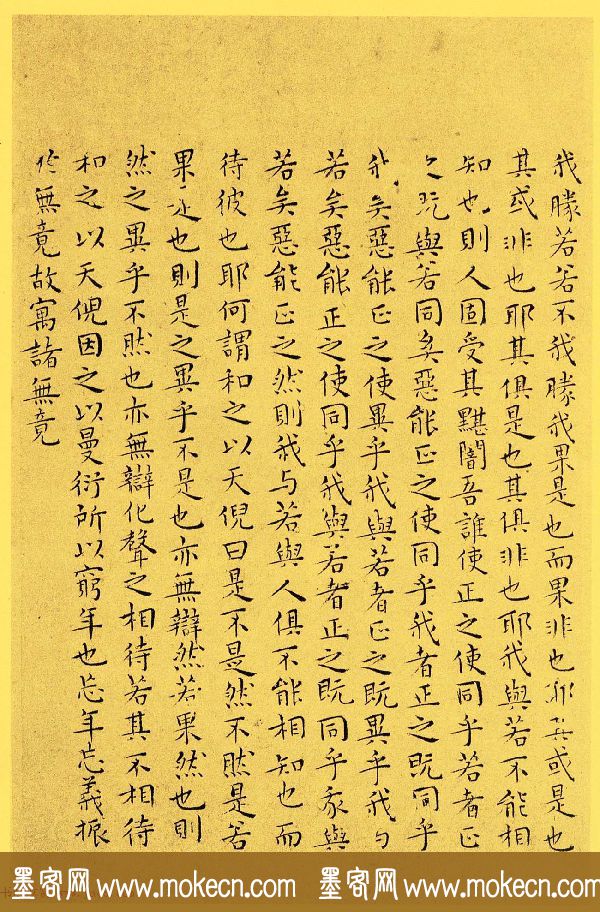 我勝若若不我勝我果是也而果非也邪其或是也
其或非也耶其俱是也其俱非也耶我與若不能相
知也則人固受其黮闇吾誰使正之使同乎若者正
之既與若同矣惡能正之使同乎我者正之既同乎
我矣惡能正之使異乎我與若者正之既異乎我与
若矣惡能正之使同乎我與若者正之既同乎我與
若矣惡能正之然則我与若與人俱不能相知也而
待彼也耶何謂和之以天倪曰是不是然不然是若
果是也則是之異乎不是也亦無辯然若果然也則
然之異乎不然也亦無辯化聲之相待若其不相待
和之以天倪因之以曼衍所以窮年也忘年忘義振
於無竟故寓諸無竟
墨客网 www.mokecn.com 墨客网 www.mokecn.com